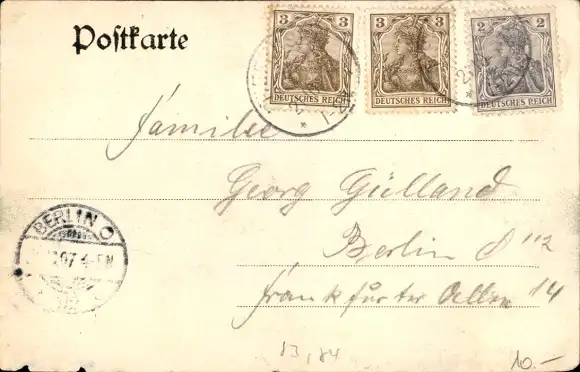 3 3 3 3 2 2
Postkarte
DEUTSCHES REICH DEUTSCHES REICH DEUTSCHES REICH
Familie
Georg Gülland
Berlin O 112
BERLIN O
07. 4-5N
Frankfurter Allee 14
13,84
10.-